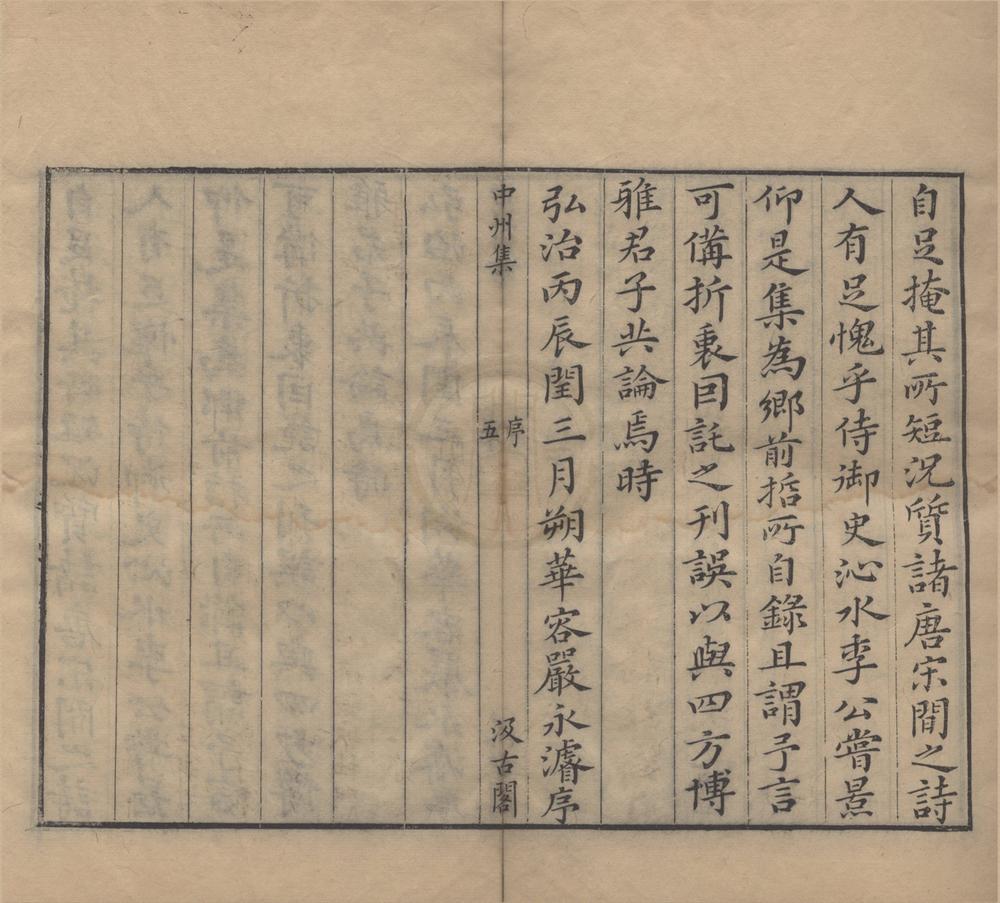 自足掩其所短況質諸唐宋間之詩
人有足愧乎侍御史沁水李公嘗景
仰是集為鄉前喆所自錄且謂予言
可備折衷因託之刊誤以與四方博
雅君子共論焉時
弘治丙辰閏三月朔華容嚴永濬序
中州集
序
五
汲古閣